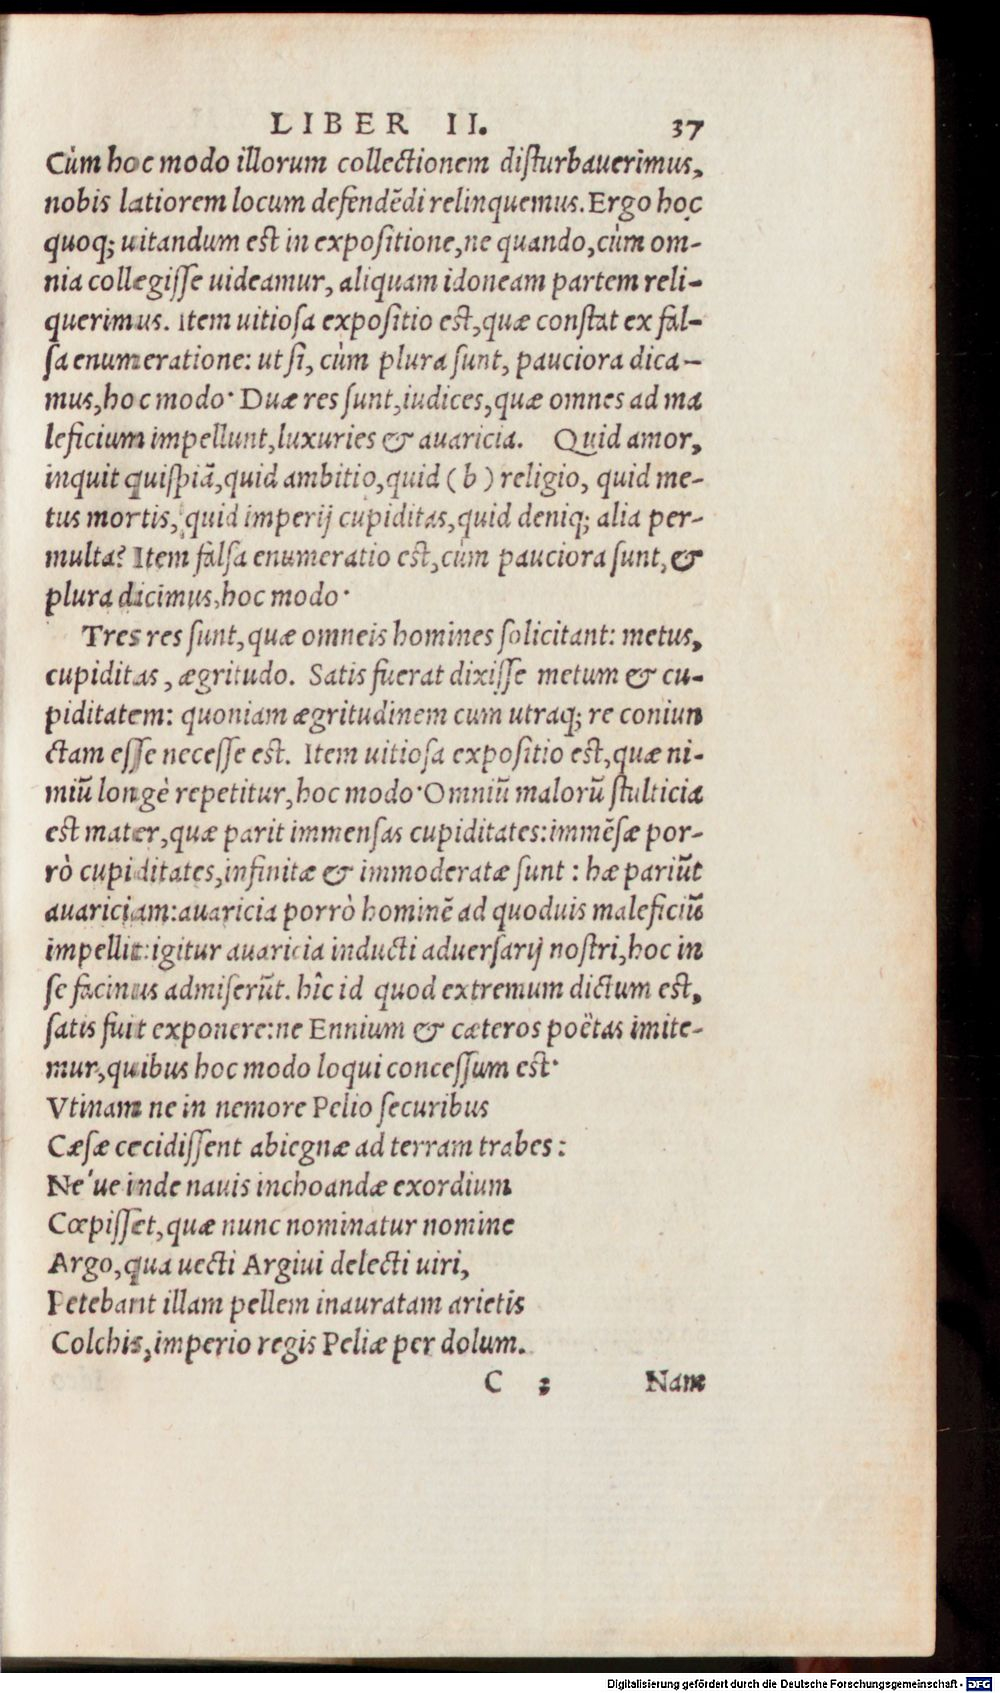 LIBER II. 37
Cùm hoc modo illorum collectionem disturbauerimus,
nobis latiorem locum defendẽdi relinquemus. Ergo hoc
quoq; uitandum est in expositione, ne quando, cùm om-
nia collegisse uideamur, aliquam idoneam partem reli-
querimus. Item uitiosa expositio est, quæ constat ex fal-
sa enumeratione: ut si, cùm plura sunt, pauciora dica-
mus, hoc modo· Duæ res sunt, iudices, quæ omnes ad ma
leficium impellunt, luxuries & auaricia. Quid amor,
inquit quispiã, quid ambitio, quid (b) religio, quid me-
tus mortis, quid imperij cupiditas, quid deniq; alia per-
multa? Item falsa enumeratio est, cùm pauciora sunt, &
plura dicimus, hoc modo·
Tres res sunt, quæ omneis homines solicitant: metus,
cupiditas, ægritudo. Satis fuerat dixisse metum & cu-
piditatem: quoniam ægritudinem cum utraq; re coniun
ctam esse necesse est. Item uitiosa expositio est, quæ ni-
miũ longè repetitur, hoc modo· Omniũ malorũ stulticia
est mater, quæ parit immensas cupiditates: immẽsæ por-
rò cupiditates, infinitæ & immoderatæ sunt: hæ pariũt
auariciam: auaricia porrò hominẽ ad quoduis maleficiũ
impellit: igitur auaricia inducti aduersarij nostri, hoc in
se facinus admiserũt. hîc id quod extremum dictum est,
satis fuit exponere: ne Ennium & cæteros poëtas imite-
mur, quibus hoc modo loqui concessum est·
Vtinam ne in nemore Pelio securibus
Cæsæ cecidissent abiegnæ ad terram trabes:
Ne´ue inde nauis inchoandæ exordium
Cœpisset, quæ nunc nominatur nomine
Argo, qua uecti Argiui delecti uiri,
Petebant illam pellem inauratam arietis
Colchis, imperio regis Peliæ per dolum.
C ; Nam
Digitalisierung gefördert durch die Deutsche Forschungsgemeinschaft - DFG